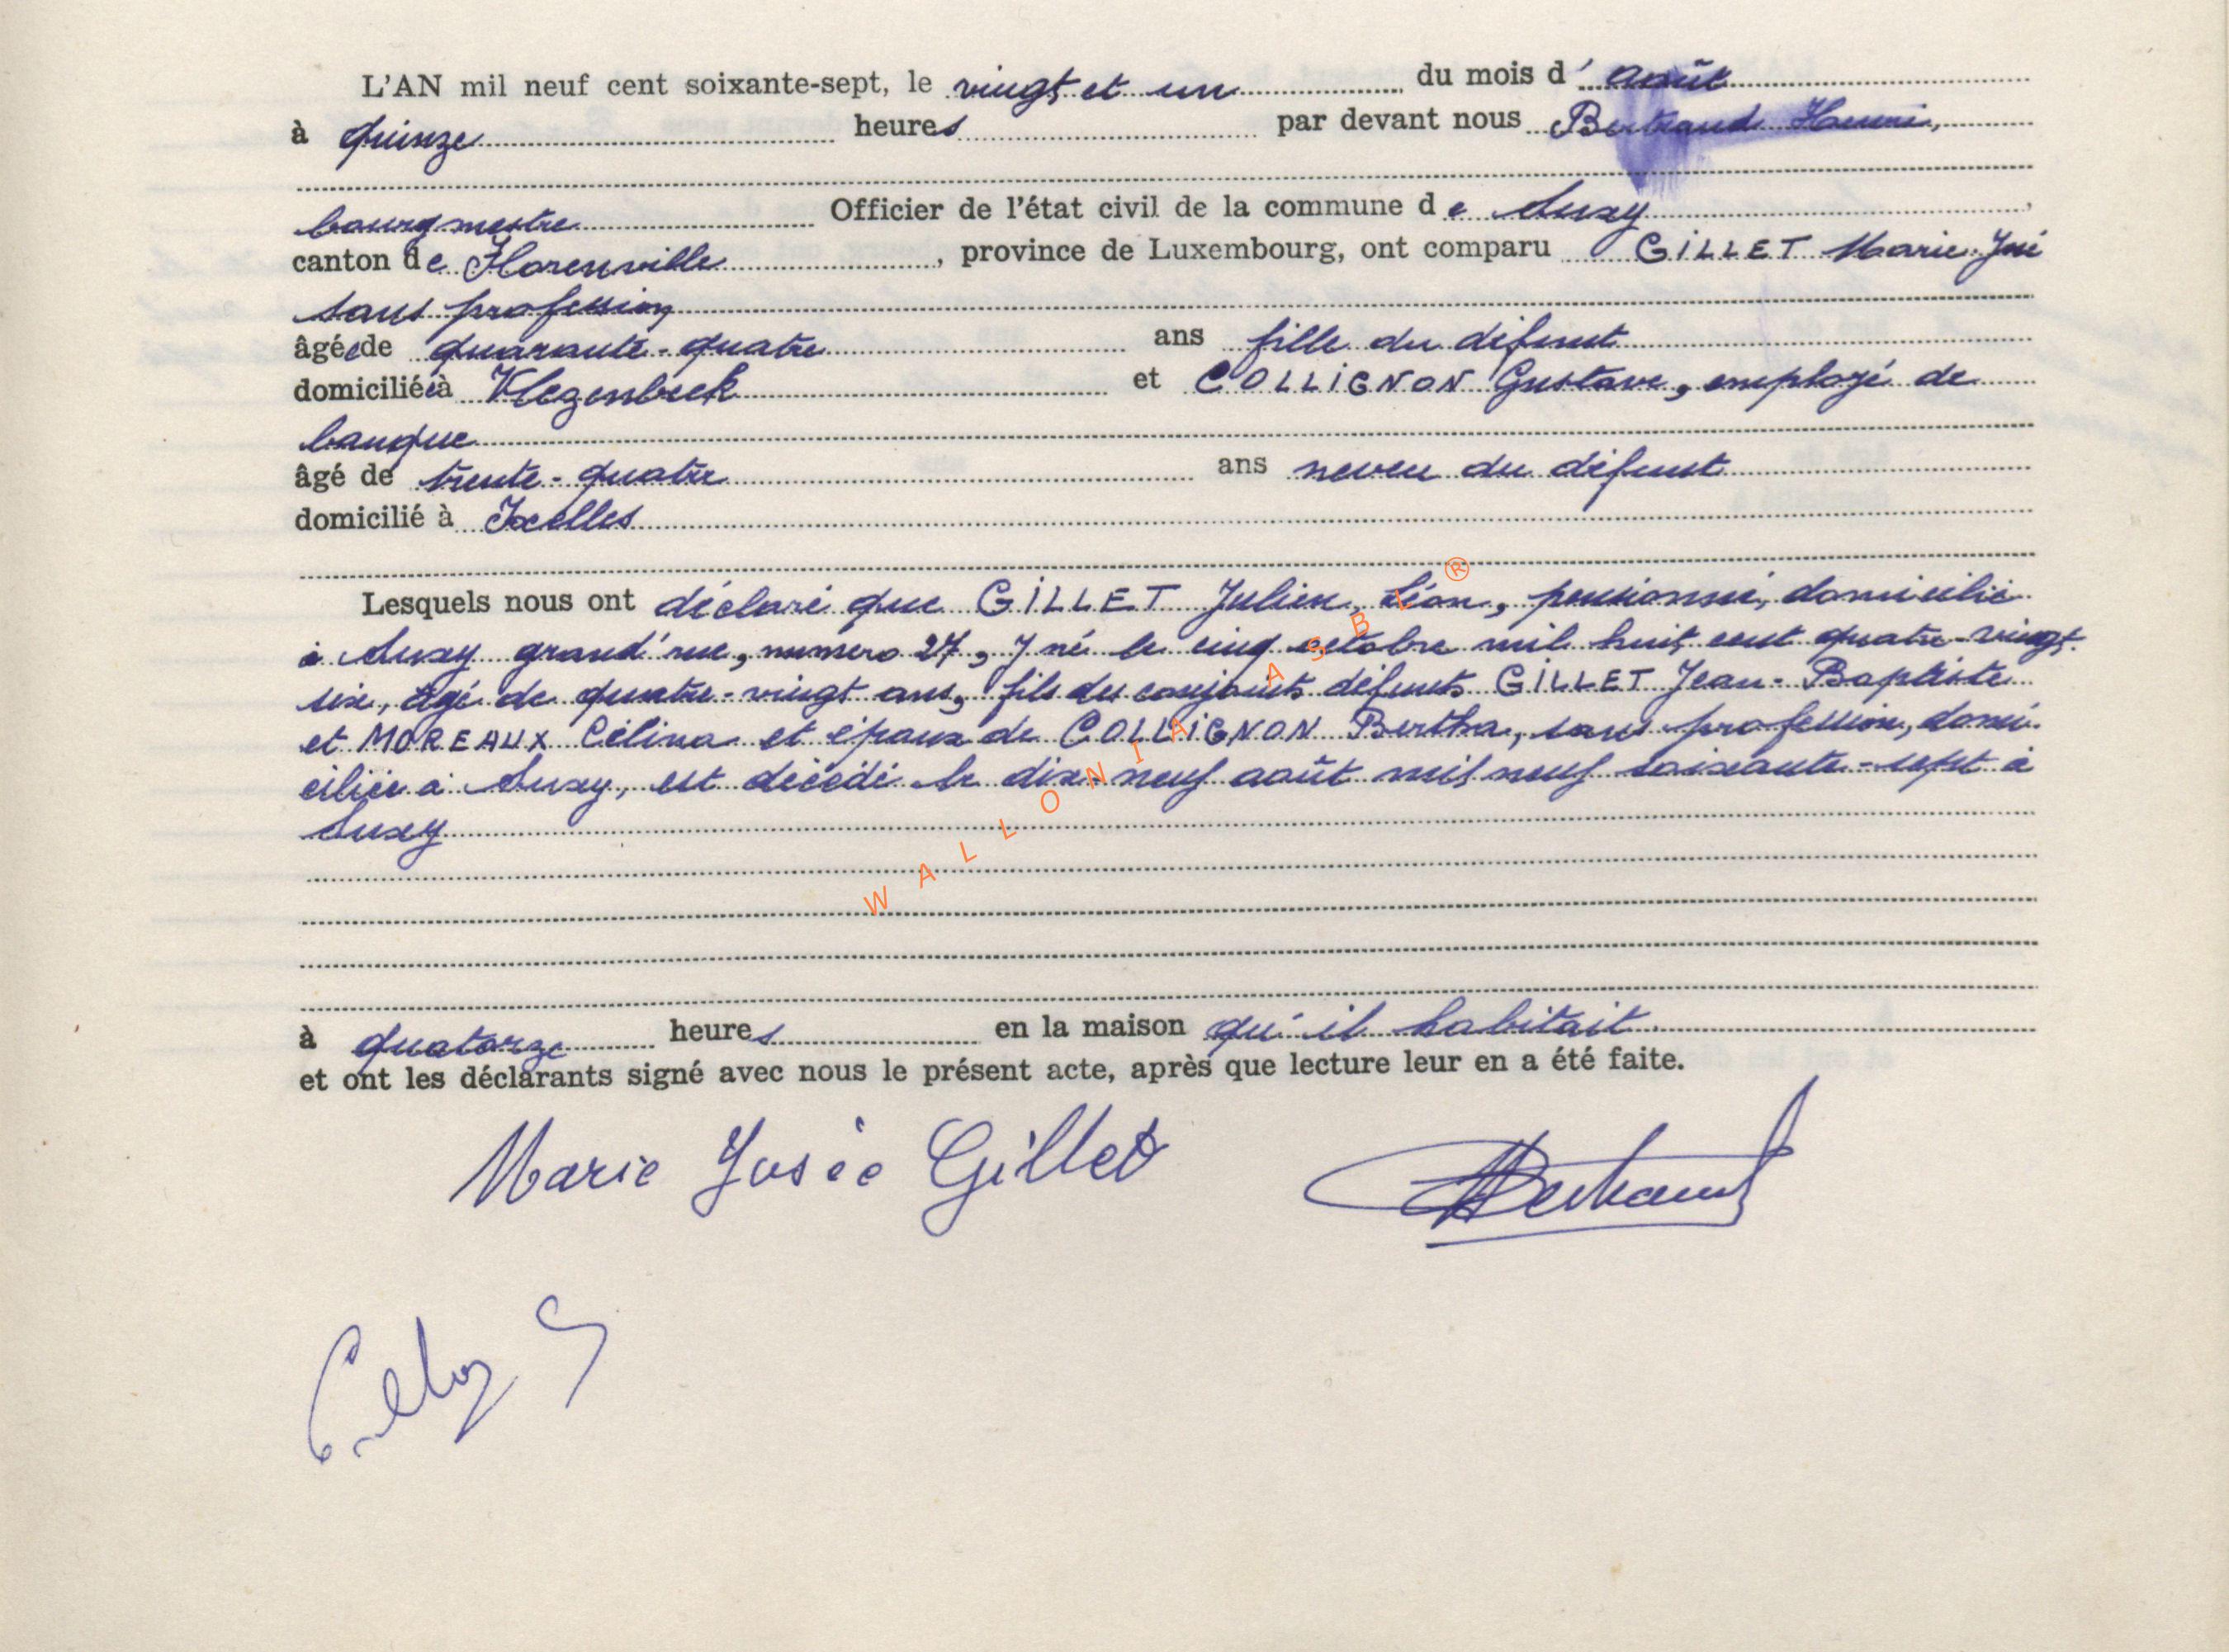 L'AN mil neuf cent soixante-sept, le vingt et un du mois d' août
à quinze heures par devant nous Bertrand Henri,
bourgmestre Officier de l'état civil de la commune de Suxy,
canton de Florenville, province de Luxembourg, ont comparu GILLET Marie-José
sans profession
âgée de quarante-quatre ans fille du défunt
domiciliée à Wezenbeek et COLLIGNON Gustave, employé de
banque
âgé de trente-quatre ans neveu du défunt
domicilié à Ixelles
Lesquels nous ont déclaré que GILLET Julien, Léon, pensionné, domicilié
à Suxy grand'rue, numéro 27, y né le cinq octobre mil huit cent quatre-vingt-
six, âgé de quatre-vingt ans, fils des conjoints défunts GILLET Jean-Baptiste
et MOREAUX Célina et époux de COLLIGNON Bertha, sans profession, domi-
ciliée à Suxy, est décédé le dix-neuf août mil neuf soixante-sept à
Suxy
à quatorze heures en la maison qu'il habitait.
et ont les déclarants signé avec nous le présent acte, après que lecture leur en a été faite.
Marie Josée Gillet HBertrand
WALLONIA ASBL ®